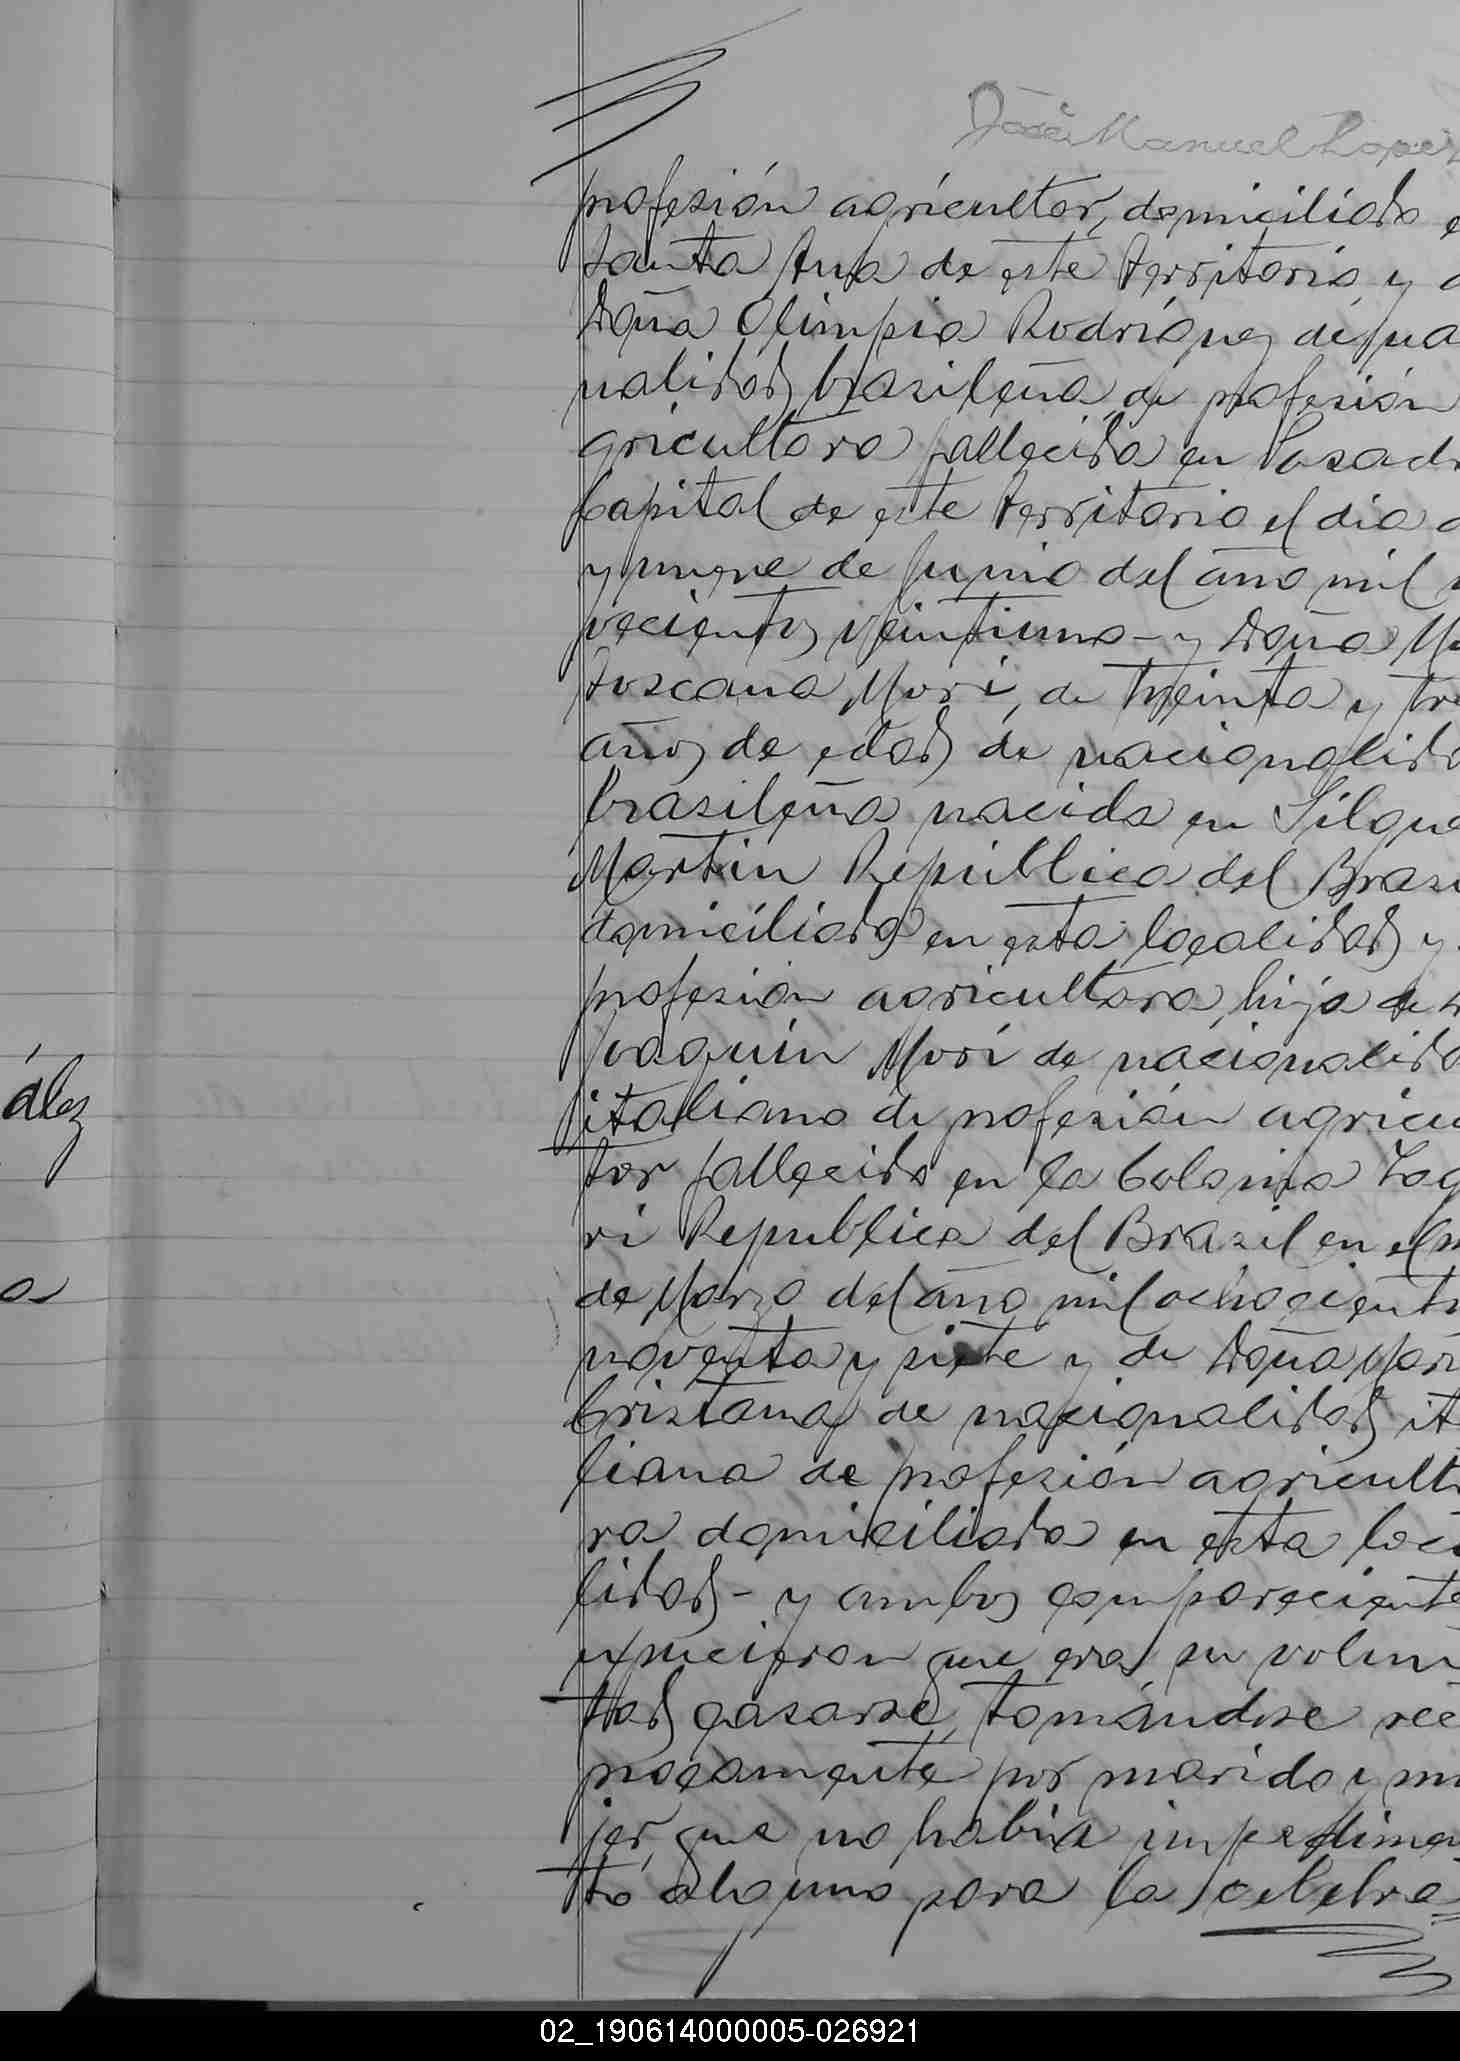 José Manuel Lopez
profesión agricultor, domiciliado e
Santa Ana de este territorio y d
Doña Olimpia Rodríguez de na
nalidad brasileña de profesión
gricultora fallecida en Posad
Capital de este territorio el dia d
y nueve de Junio del año mil n
vecientos veintiuno - y Doña M
Toscana Mori, de treinta y tre
años de edad de nacionalida
brasileña nacida en Silque
Martin República del Brasi
domiciliada en esta localidad y
profesión agricultora, hija de D
Joaquín Mori de nacionalida
italiano de profesión agricu
tor fallecido en la Colonia Jag
ri Republica del Brazil en el m
de Marzo del año mil ochocient
noventa y siete y de Doña Mar
Cristana de nacionalidad it
liana de profesión agricult
ra domiciliada en esta loca
lidad - y ambos comparecient
expusieron que era su volun
tad casarse, tomándose rec
procamente por marido y mu
jer, que no había impedimen
to alguno para la celebra
ález
a
02_190614000005-026921